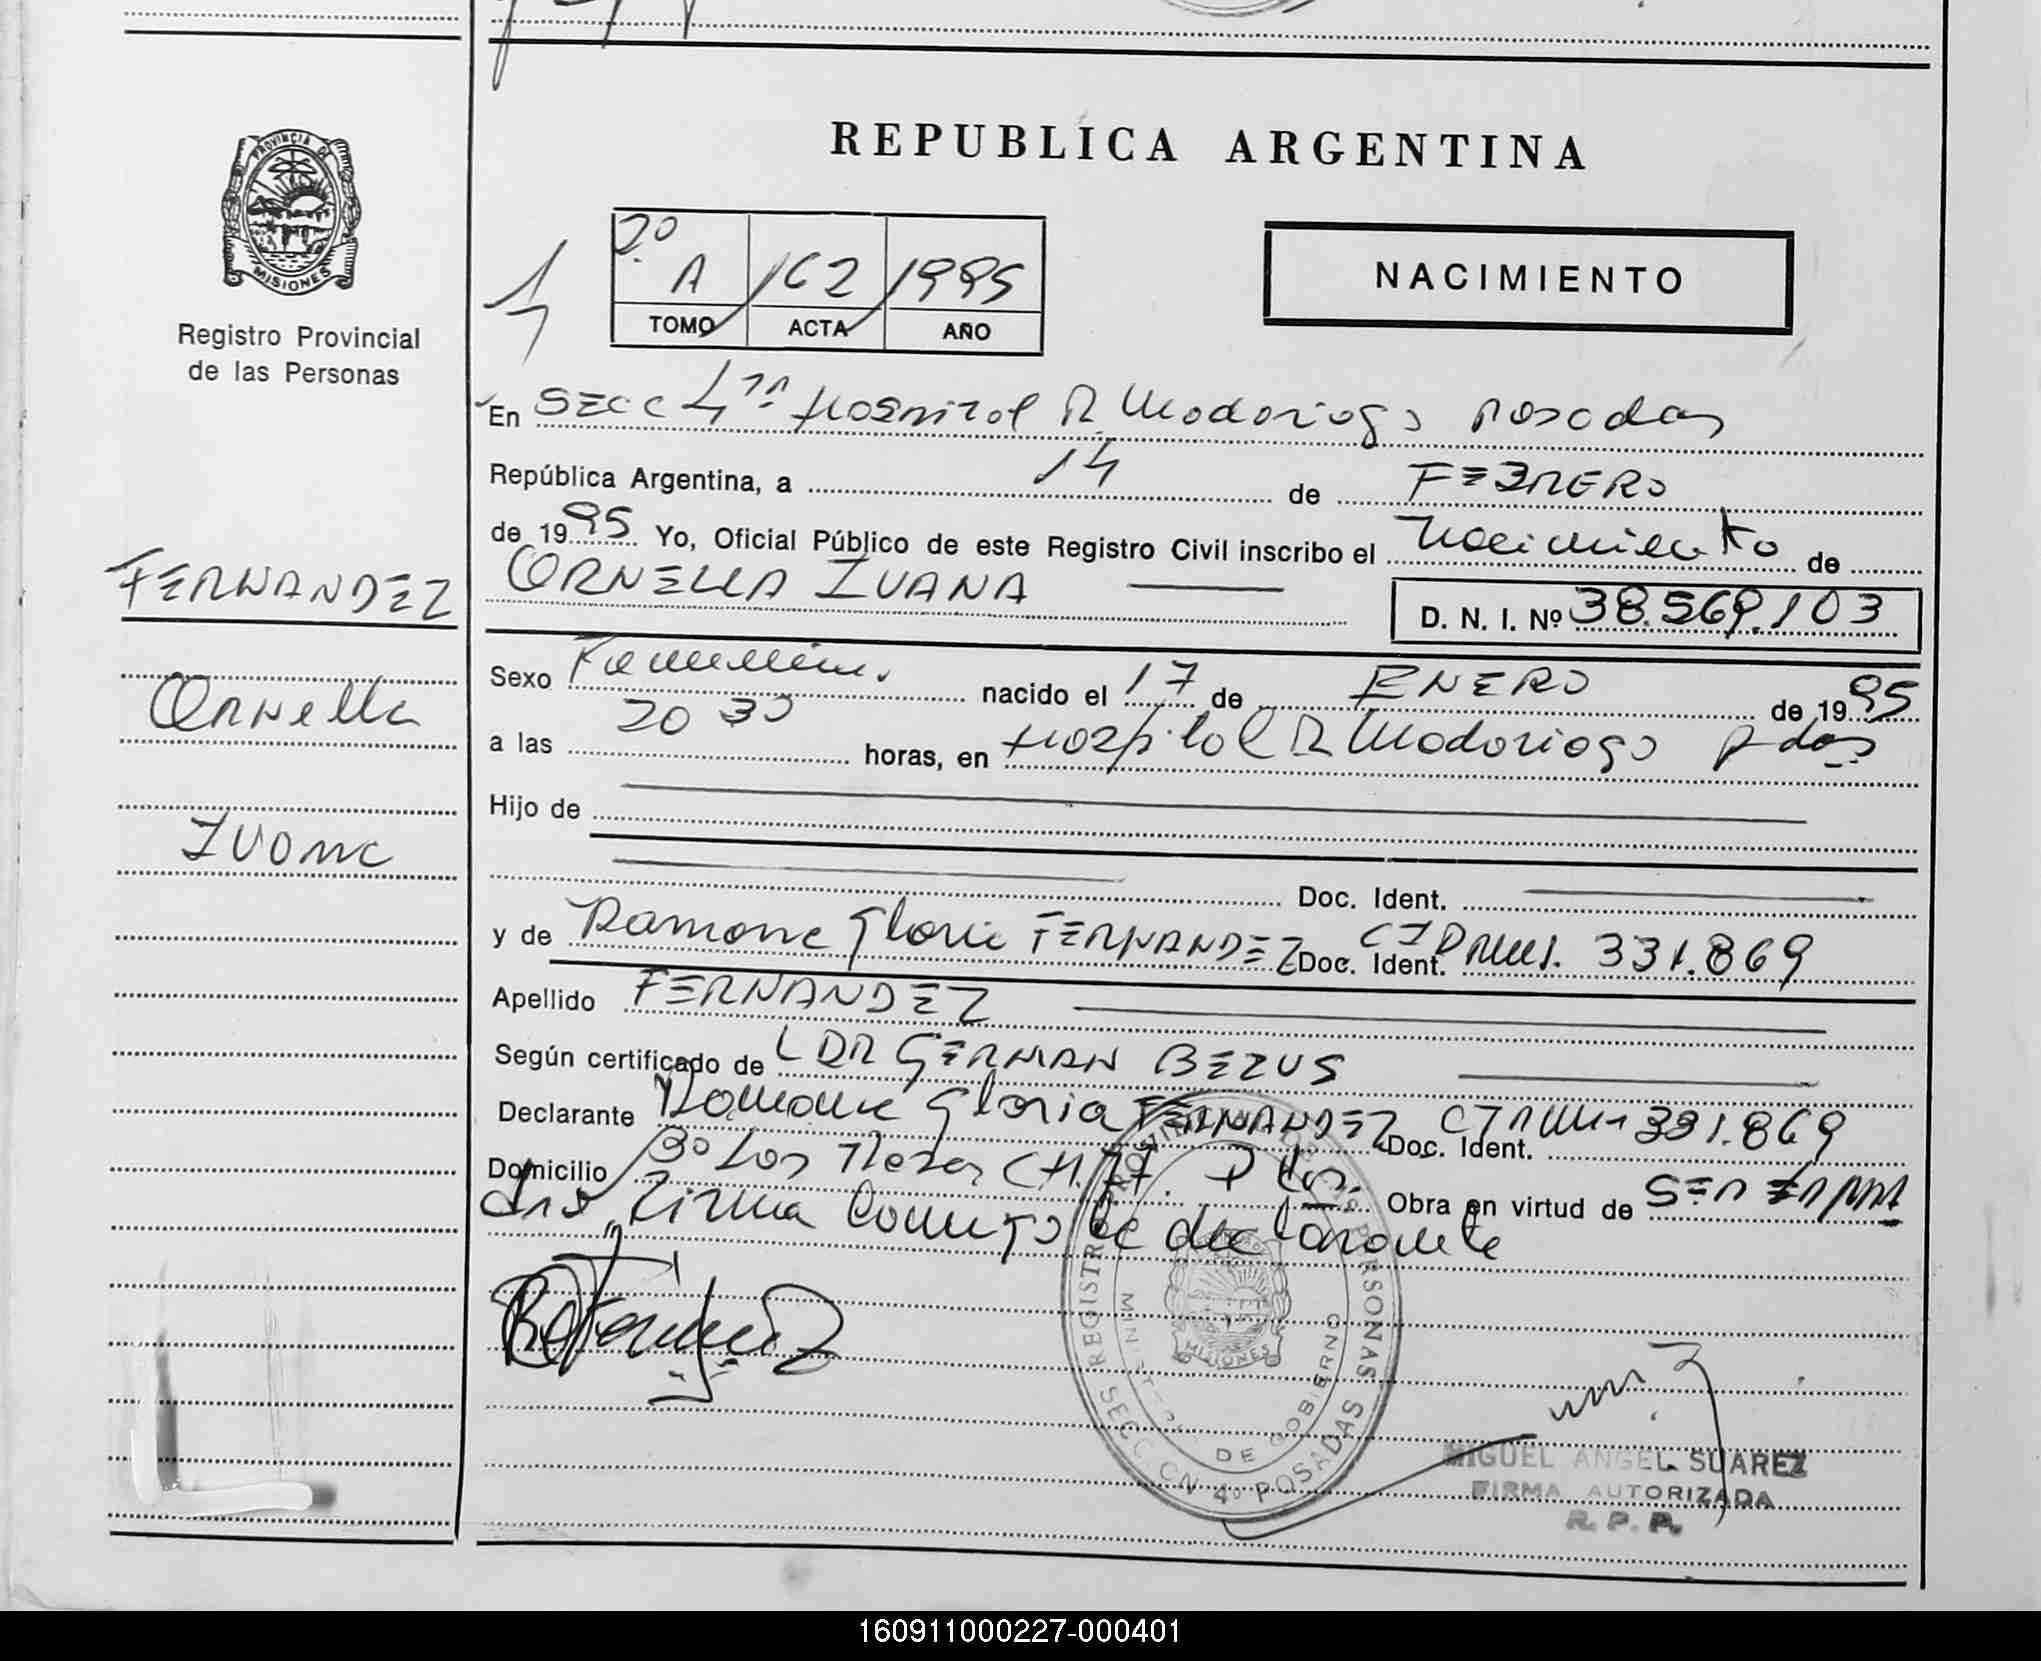 PROVINCIA DE
MISIONES
Registro Provincial
de las Personas
FERNANDEZ
Ornella
Ivana
REPUBLICA ARGENTINA
2º
A 162 1995
TOMO ACTA AÑO
NACIMIENTO
En Secc 4ta Hospital R Madariaga Posadas
República Argentina, a 14 de FEBRERO
de 1995 Yo, Oficial Público de este Registro Civil inscribo el Nacimiento de
ORNELLA IVANA D. N. I. Nº 38.569.103
Sexo Femenino nacido el 17 de ENERO de 1995
a las 20 30 horas, en Hospital R Madariaga Pdas
Hijo de
Doc. Ident.
y de Ramona Gloria FERNANDEZ Doc. Ident. CI 331.869
Apellido FERNANDEZ
Según certificado de DR GERMAN BEZUS
Declarante Ramona Gloria FERNANDEZ Doc. Ident. 331.869
Domicilio Bº Los CH. 77. Obra en virtud de SER
firma Conmigo la declarante
REGISTRO PROVINCIAL DE LAS PERSONAS
MINISTERIO DE GOBIERNO
MISIONES
SECCION 4º POSADAS
MIGUEL ANGEL SUAREZ
FIRMA AUTORIZADA
R. P. P.
160911000227-000401